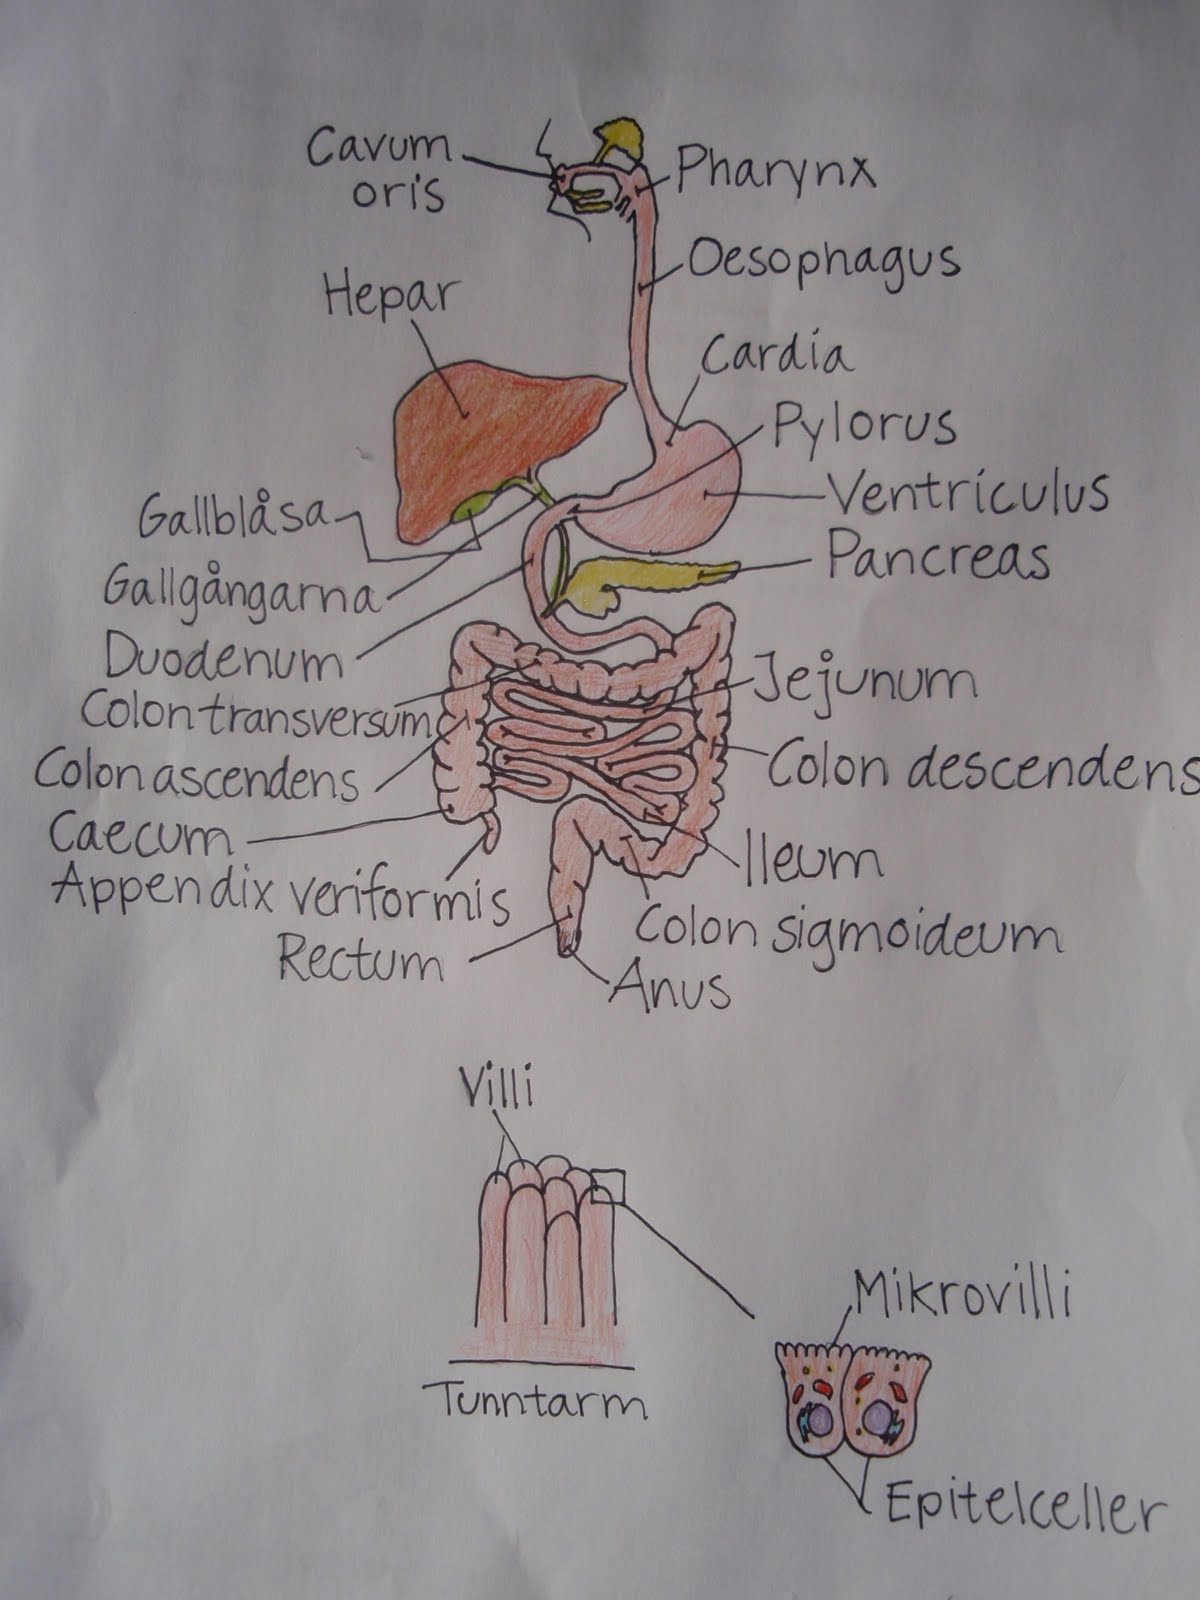 Cavum
oris
Pharynx
Oesophagus
Hepar
Cardia
Pylorus
Ventriculus
Gallblåsa
Pancreas
Gallgångarna
Duodenum
Jejunum
Colon transversum
Colon ascendens
Colon descendens
Caecum
Ileum
Appendix veriformis
Colon sigmoideum
Rectum
Anus
Villi
Mikrovilli
Tunntarm
Epitelceller